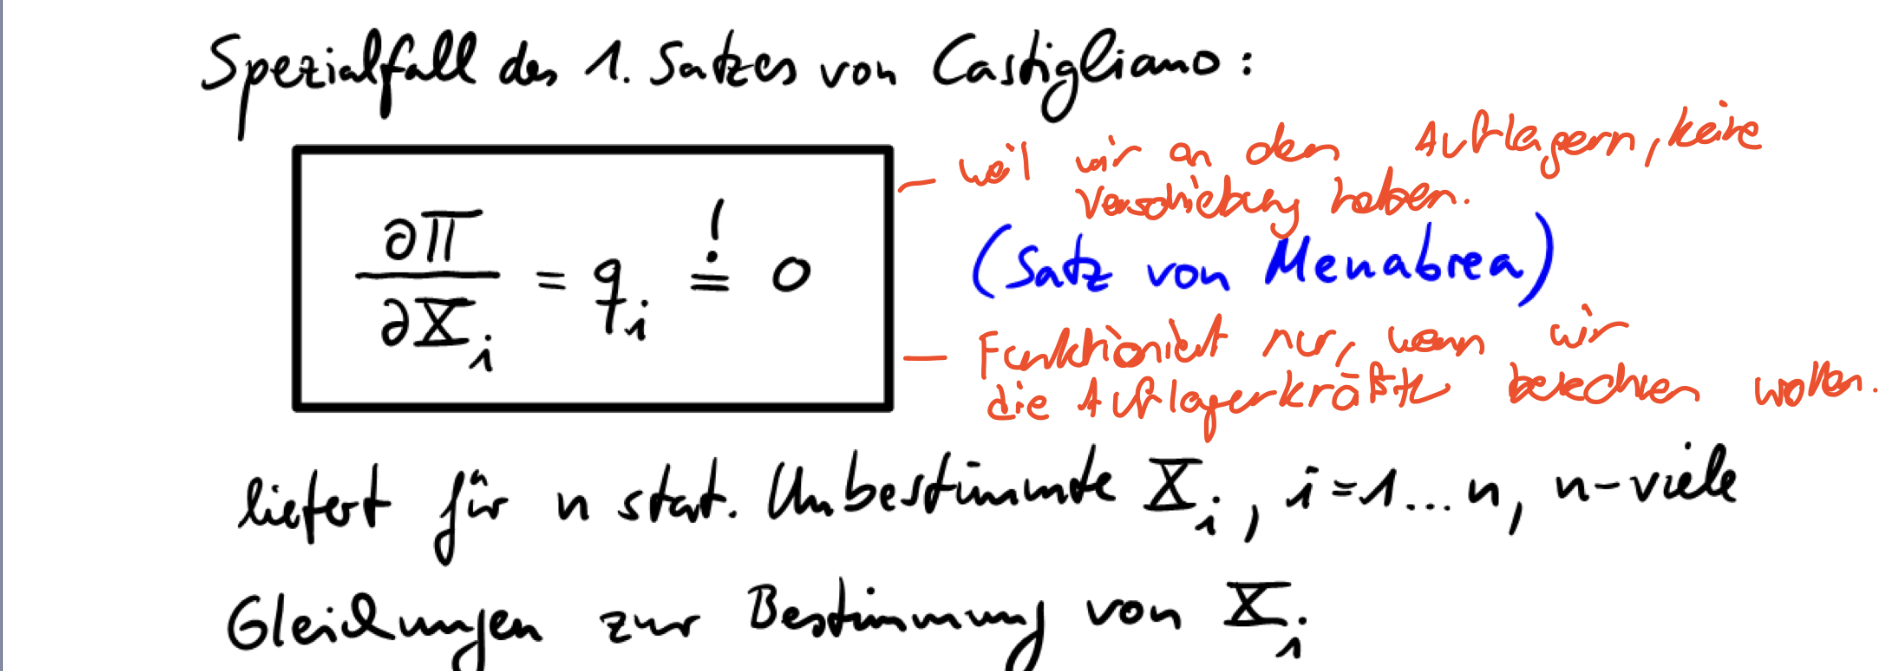 Spezialfall des 1. Satzes von Castigliano:
∂Π/∂X_i = q_i =! 0
– weil wir an den Auflagern, keine
Verschiebung haben.
(Satz von Menabrea)
– Funktioniert nur, wenn wir
die Auflagerkräfte berechnen wollen.
liefert für n stat. Unbestimmte X_i, i=1...n, n-viele
Gleichungen zur Bestimmung von X_i